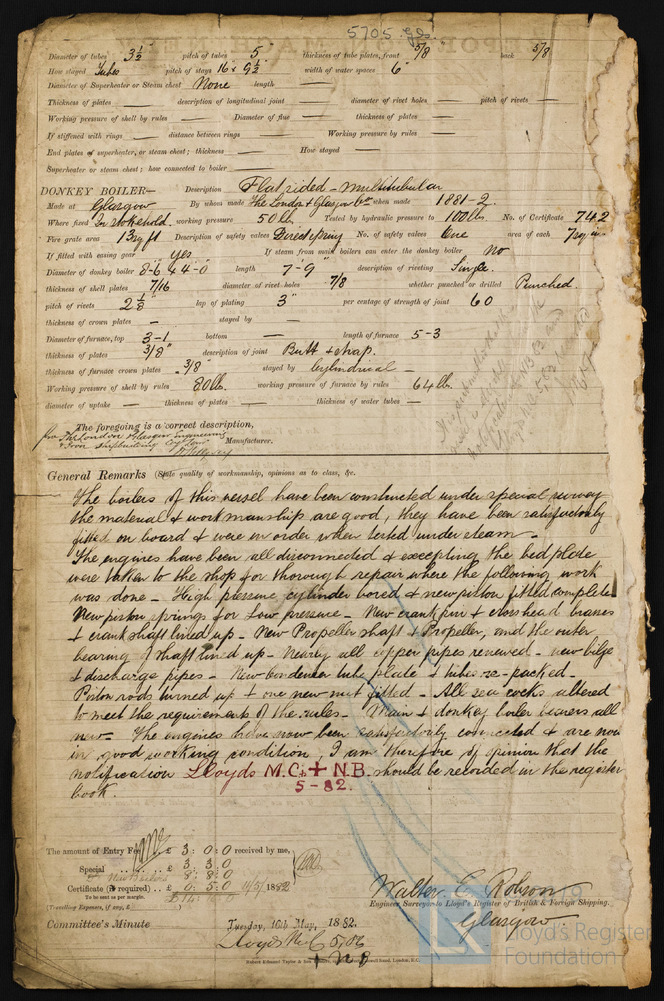 5705 Gls.
Diameter of tubes 3½ pitch of tubes 5 thickness of tube plates, front 5/8 back 5/8
How stayed Tubes pitch of stays 16 x 9½ width of water spaces 6"
Diameter of Superheater or Steam chest None length —
Thickness of plates — description of longitudinal joint — diameter of rivet holes — pitch of rivets —
Working pressure of shell by rules — Diameter of flue — thickness of plates —
If stiffened with rings — distance between rings — Working pressure by rules —
End plates of superheater, or steam chest; thickness — How stayed —
Superheater or steam chest; how connected to boiler —
DONKEY BOILER— Description Flat sided - multitubular
Made at Glasgow By whom made The London & Glasgow Coy when made 1881-2
Where fixed In Stokehold working pressure 50 lb. Tested by hydraulic pressure to 100 lbs. No. of Certificate 742
Fire grate area 13 sq ft Description of safety valves Direct Spring No. of safety valves One area of each 7 sq in
If fitted with easing gear Yes If steam from main boilers can enter the donkey boiler No
Diameter of donkey boiler 8-6 & 4-0 length 7-9" description of riveting Single.
thickness of shell plates 7/16 diameter of rivet holes 7/8 whether punched or drilled Punched.
pitch of rivets 2½ lap of plating 3" per centage of strength of joint 60
thickness of crown plates — stayed by —
Diameter of furnace, top 3-1 bottom — length of furnace 5-3
thickness of plates 3/8" description of joint Butt & strap.
thickness of furnace crown plates 3/8" stayed by Cylindrical —
Working pressure of shell by rules 80 lb. working pressure of furnace by rules 64 lb.
diameter of uptake — thickness of plates — thickness of water tubes —
The foregoing is a correct description,
for The London & Glasgow Engineering
& Iron Shipbuilding Coy Limd Manufacturer.
General Remarks (State quality of workmanship, opinions as to class, &c.
The boilers of this vessel have been constructed under special survey
the material & workmanship are good, they have been satisfactorily
fitted on board & were in order when tested under steam —
The engines have been all disconnected & excepting the bed plate
were taken to the shop for thorough repair where the following work
was done — High pressure cylinder bored & new piston fitted complete
New piston springs for Low pressure — New crank pin & crosshead brasses
& crank shaft lined up — New Propeller shaft & Propeller, and the outer
bearing of shaft lined up — Nearly all copper pipes renewed — new bilge
& discharge pipes — New condenser tube plate & tubes re-packed —
Piston rods turned up & one new nut fitted — All sea cocks altered
to meet the requirements of the rules — Main & donkey boiler bearers all
new — The engines have now been satisfactorily connected & are now
in good working condition, I am therefore of opinion that the
notification Lloyds M.C. + N.B. should be recorded in the register
5-82.
book.
The amount of Entry Fee £ 3 : 0 : 0 received by me,
Special £ 3 3 0
New Boilers 8 : 8 : 0
Certificate (if required) .. £ 0 : 5 : 0 11/5/ 1882
To be sent as per margin.
(Travelling Expenses, if any, £ )
Walter E. Robson
Engineer Surveyor to Lloyd's Register of British & Foreign Shipping.
Glasgow
Committee's Minute Tuesday, 16th May, 1882.
Lloyds M.C. 5/82
+ N B
Lloyd's Register
Foundation